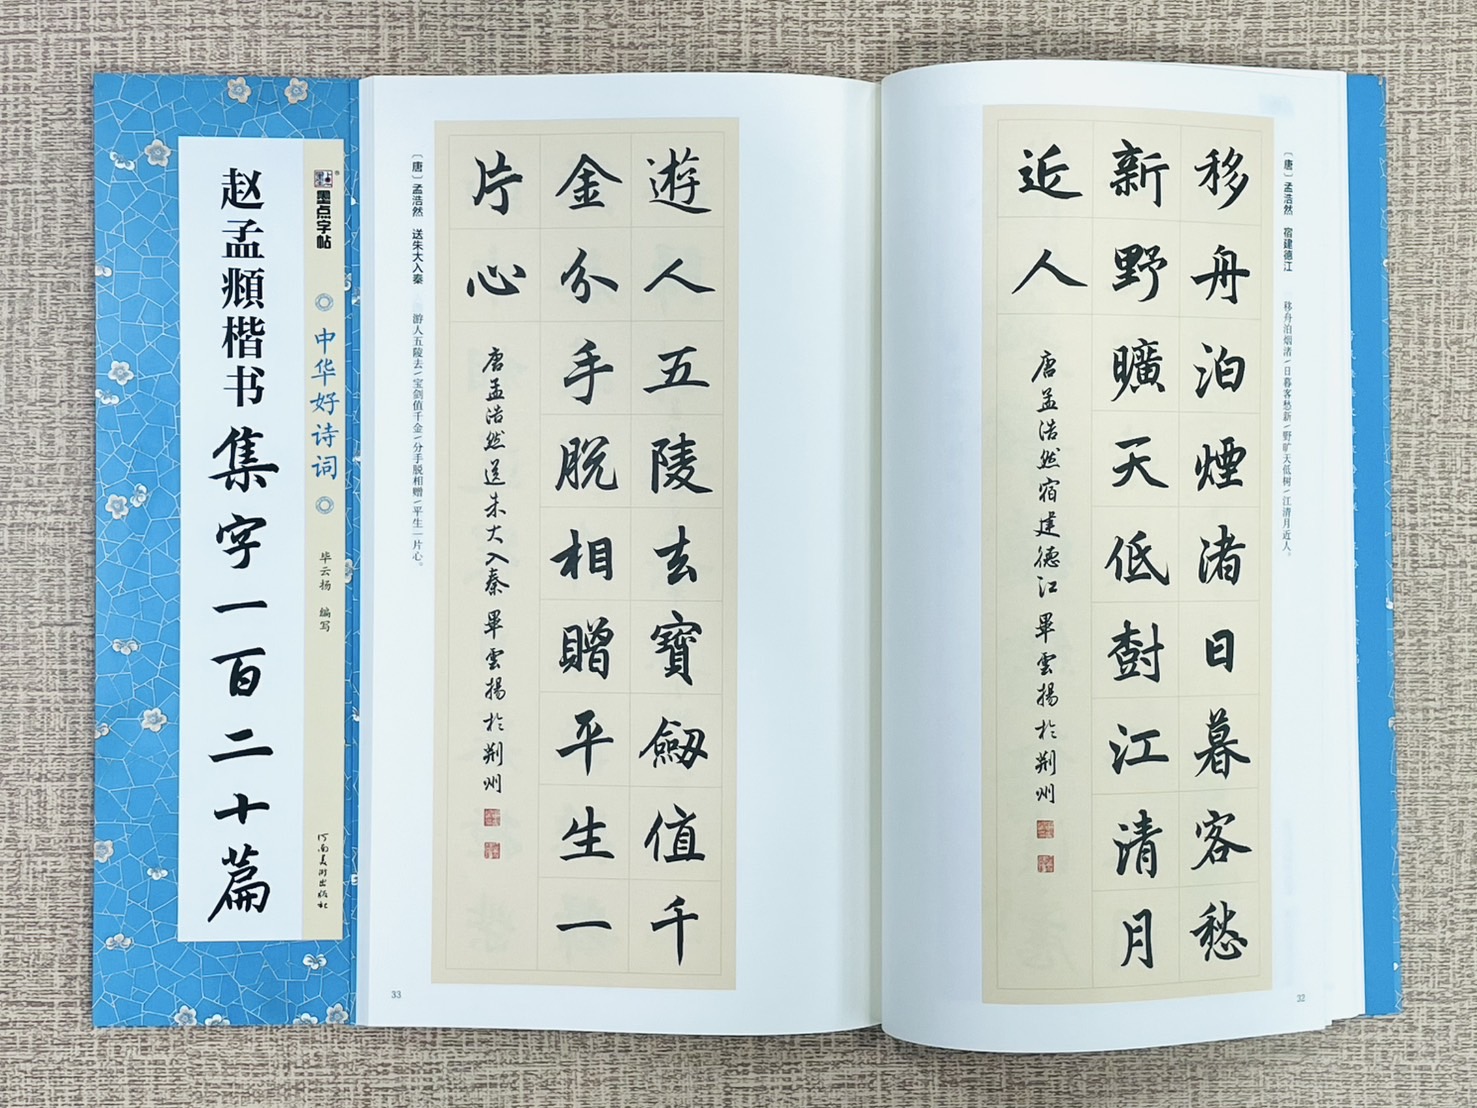 墨点字帖
中华好诗词
毕云扬 编写
河南美术出版社
赵孟頫楷书集字一百二十篇
〔唐〕孟浩然 宿建德江
移舟泊烟渚/日暮客愁新/野旷天低树/江清月近人。
移舟泊煙渚日暮客愁
新野曠天低樹江清月
近人
唐孟浩然宿建德江畢雲揚於荆州
32
遊人五陵去寶劒值千
金分手脱相贈平生一
片心
唐孟浩然送朱大入秦畢雲揚於荆州
〔唐〕孟浩然 送朱大入秦
游人五陵去/宝剑值千金/分手脱相赠/平生一片心。
33